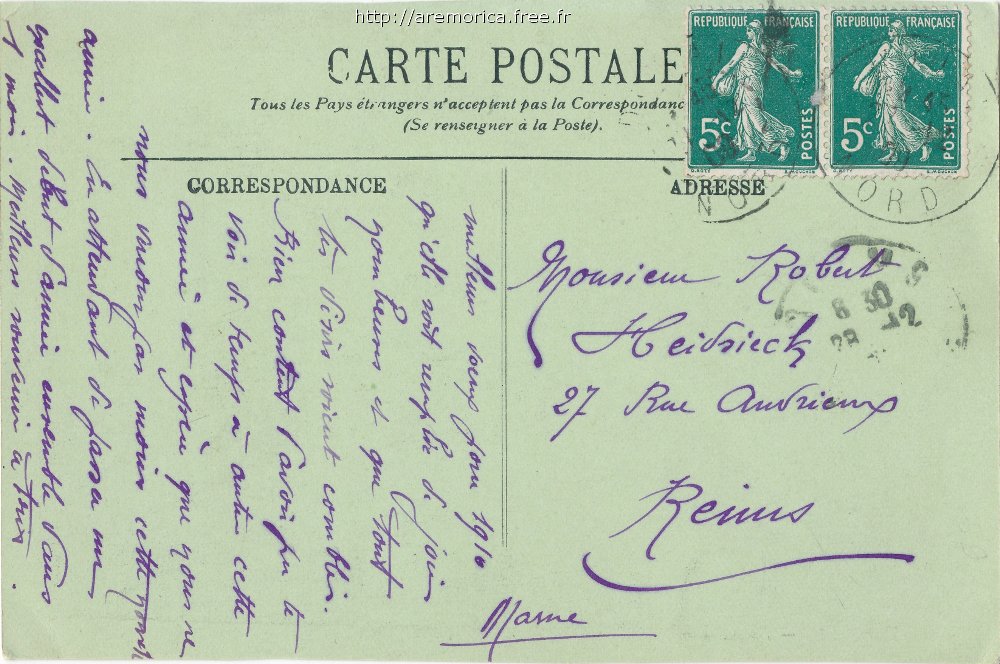 http://aremorica.free.fr
CARTE POSTALE
Tous les Pays étrangers n'acceptent pas la Correspondanc
(Se renseigner à la Poste).
RÉPUBLIQUE FRANÇAISE
5c
POSTES
RÉPUBLIQUE FRANÇAISE
5c
POSTES
NO
NORD
8 30
CORRESPONDANCE
meilleurs voeux pour 1910
qu'elle soit remplie de joies
et que tout
tes désirs soient comblés.
Bien content d'avoir pu te
voir de temps à autre cette
année et espère que nous ne
nous verrons pas moins cette
année. En attendant de passer un
excellent début d'année ensemble dans
1 mois. Meilleurs souvenirs à tous.
ADRESSE
Monsieur Robert
Heidsieck
27 Rue Andrieux
Reims
Marne